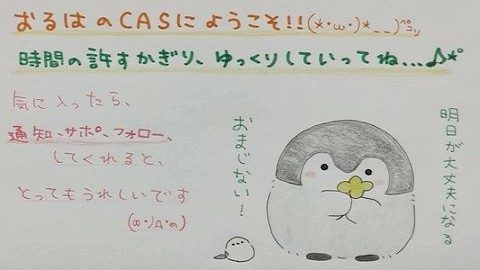 おるはのCASにようこそ!!(*･ω･)*_ _)ﾍﾟｺﾘ
時間の許すかぎり、ゆっくりしていってね…♪*ﾟ
気に入ったら、
通知、サポ、フォロー、
してくれると、
とってもうれしいです
明日が大丈夫になる
おまじない!